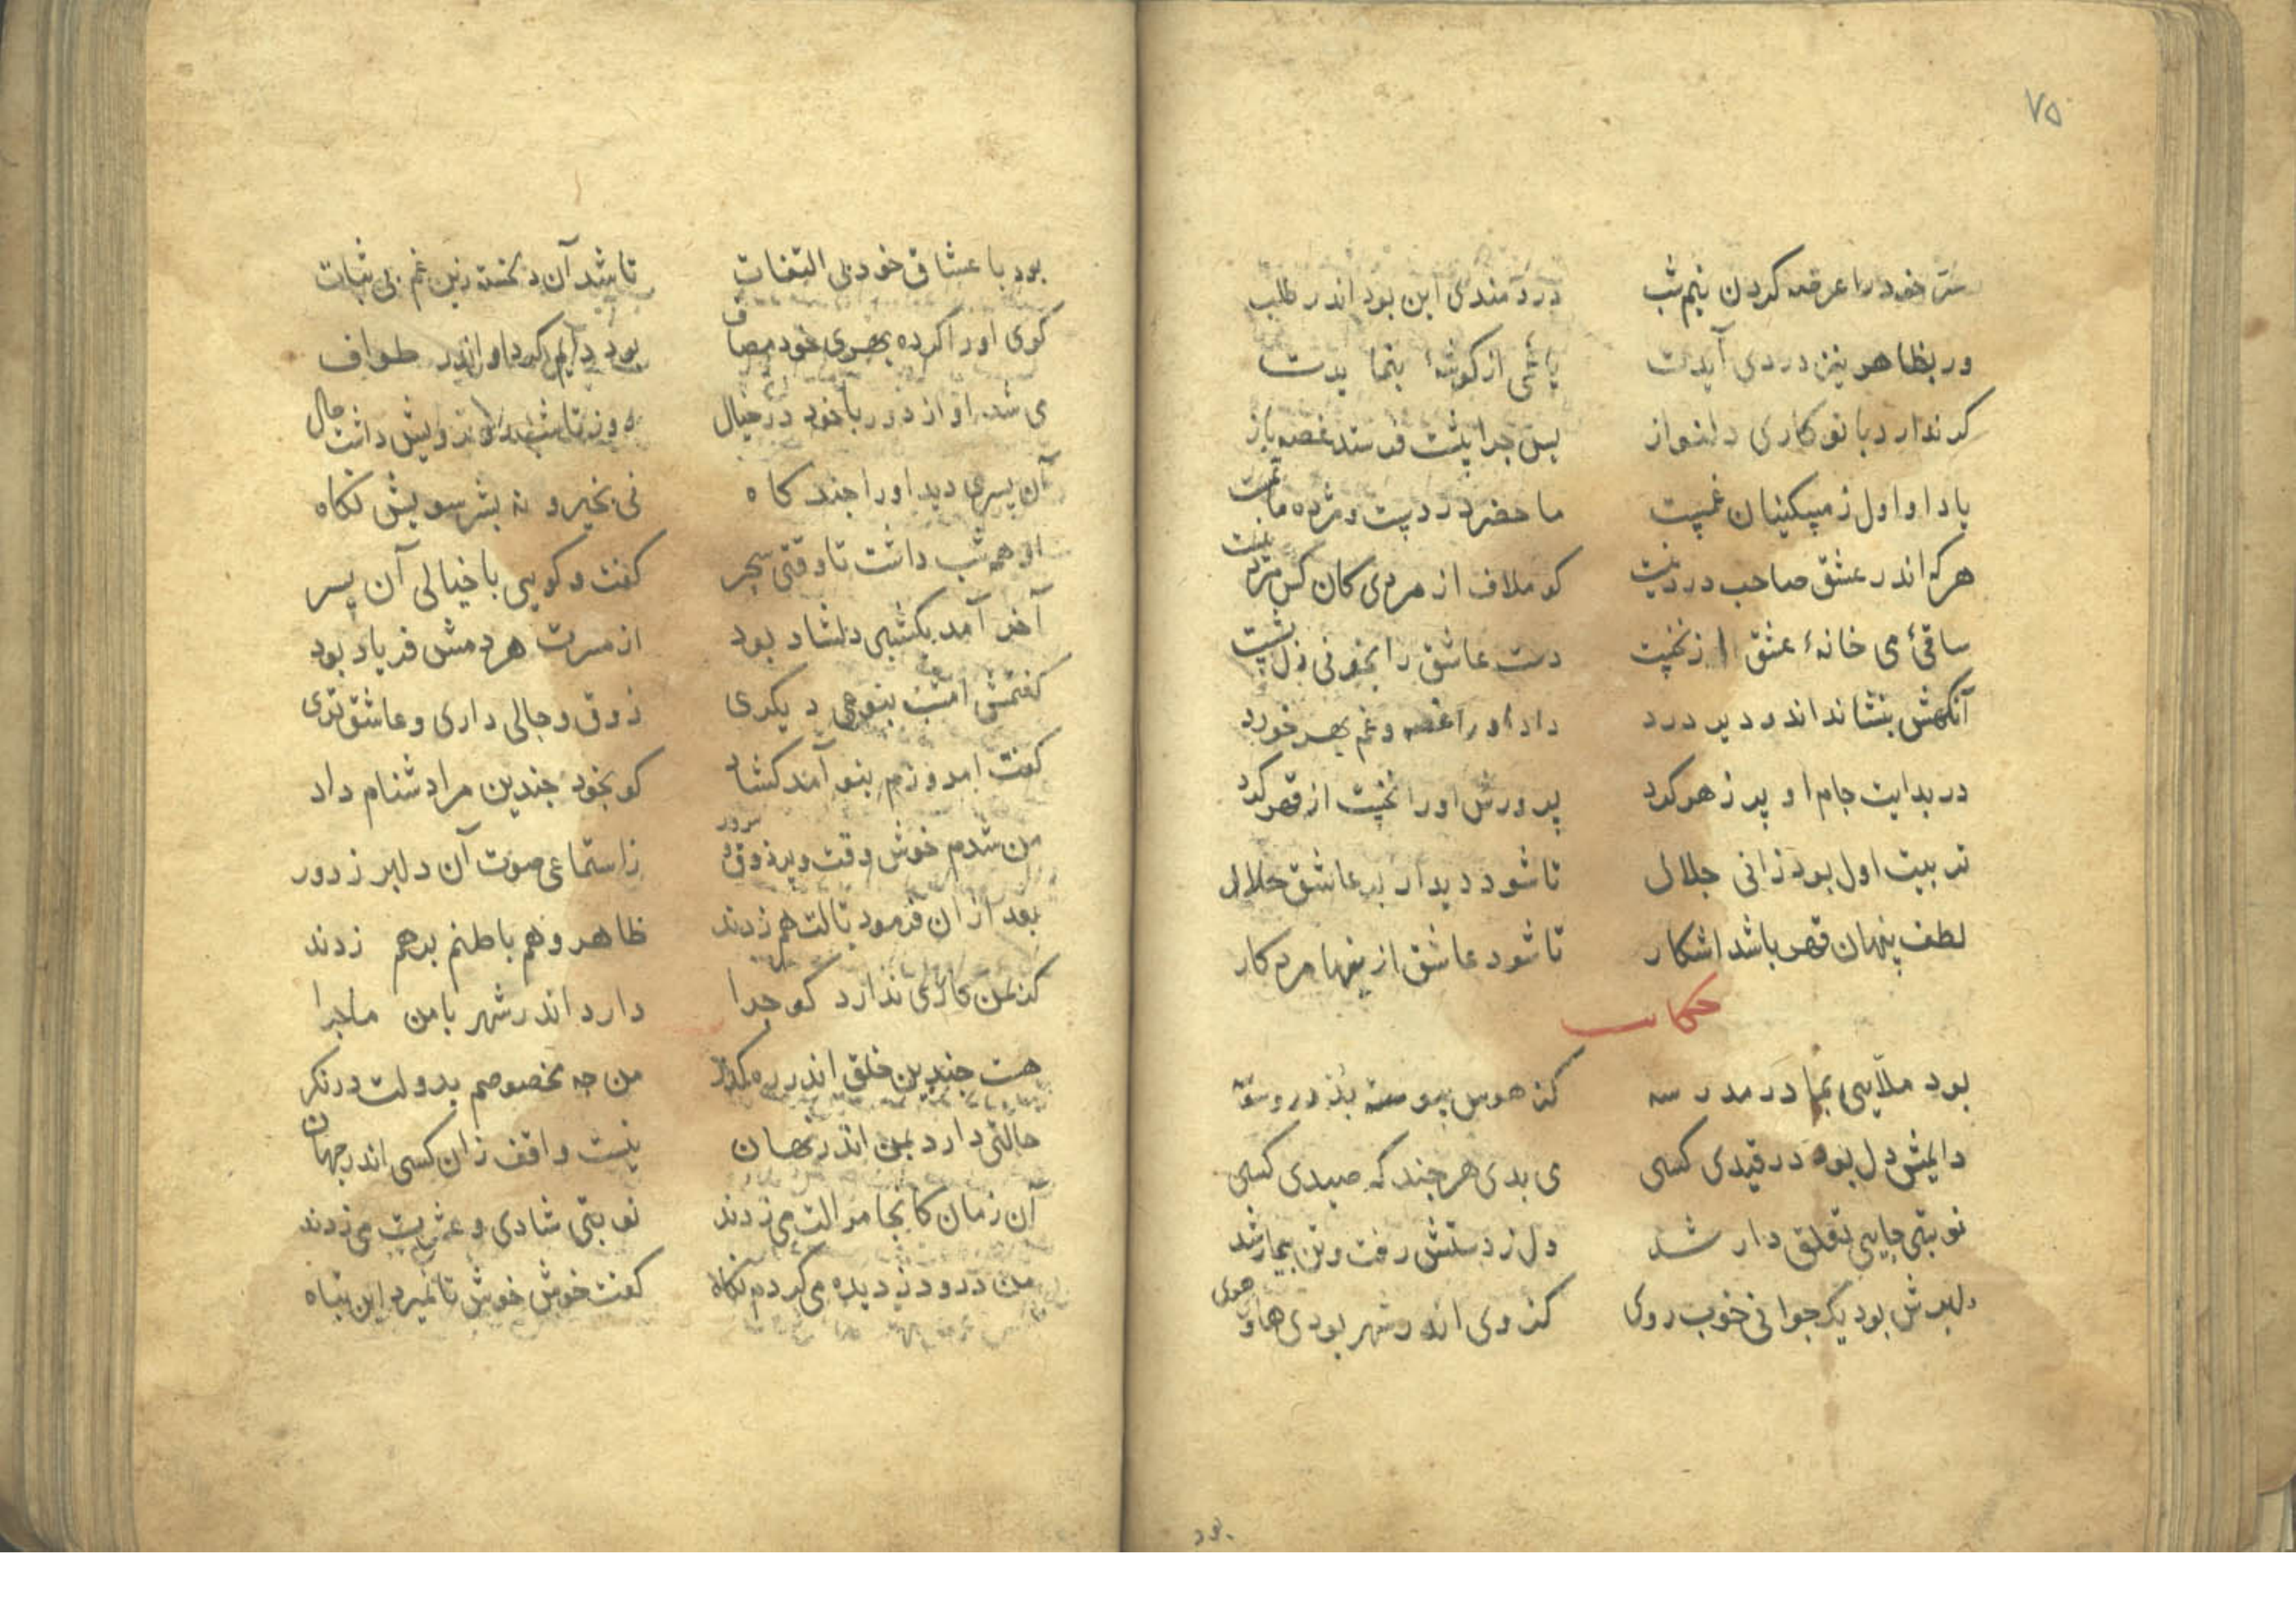 ۷۵
سرّ خود را عرضه کردن نیم شب دردمندی این بود اندر طلب
ور بظاهر نیز دردی آیدت یا غمی از کوشهٔ بنما یدت
کر ندارد با تو کاری دلنواز پس چرا پیشت فرستد غصه باز
یاد او اول ز مسکینان غمیست ما حضر دردیست و مژده ماتمیست
هرکه اندر عشق صاحب درد نیست کو ملاف از مردی کان کس مرد نیست
ساقیٔ می خانهٔ عشق از نخست دست عاشق را بخونی دل بشست
آنکهش بنشاند اندر دیر درد داد او را غصه و غم بهر خورد
در بدایت جام او پر زهر کرد پرورش او را نخست از قهر کرد
تربیت اول بود زانی جلال تا شود دیدار بر عاشق حلال
لطف پنهان قهر باشد اشکار تا شود عاشق ازینها مرد کار
حکایت
بود ملّایی بما در مدرسه کز هوس پیوسته بد در وسوسه
دایمش دل بود در قیدی کسی می بدی هر چند که صیدی کسی
نوبتی جایی تعلق دار شد دل ز دستش رفت و تن بیمار شد
دلبرش بود یک جوانی خوب روی کز وی اندر شهر بودی های و هوی
بود
بود با عشاق خود بی التفات تا شد آن دلخسته زین غم بی ثبات
کوی او را کرده بهری خود مصاف بود دایم کرد او اندر طواف
می شد او از دور با خود در خیال روز تا شب
آن پسر می دید او را چند کاه نی بخیر و نه بشر سویش نکاه
او همه شب داشت تا وقتی سحر کفت و کویی با خیالی آن پسر
آخر آمد یکشبی دلشاد بود از مسرت هر دمش فریاد بود
کفتمش امشب بنوعی دیکری ذوق و حالی داری و عاشق تری
کفت امروزم بنو آمد کشاد کو بخود چندین مرا دشنام داد
من شدم خوش وقت و پر ذوق و سرور ز استماعی صوت آن دلبر ز دور
بعد از آن فرمود تا لت هم زدند ظاهر و هم باطنم برهم زدند
کز من کاری ندارد کو چرا دارد اندر شهر با من ماجرا
هست چندین خلق اندر ره کذر من چه مخصوصم بدولت در نکر
حالتی دارد بمن اندر نهان نیست واقف زان کسی اندر جهان
آن زمان کانجا مرا لت می زدند نوبتی شادی و عشرت می زدند
من درو دزدیده می کردم نکاه کفت خوش خوش تا نمیرد این تباه